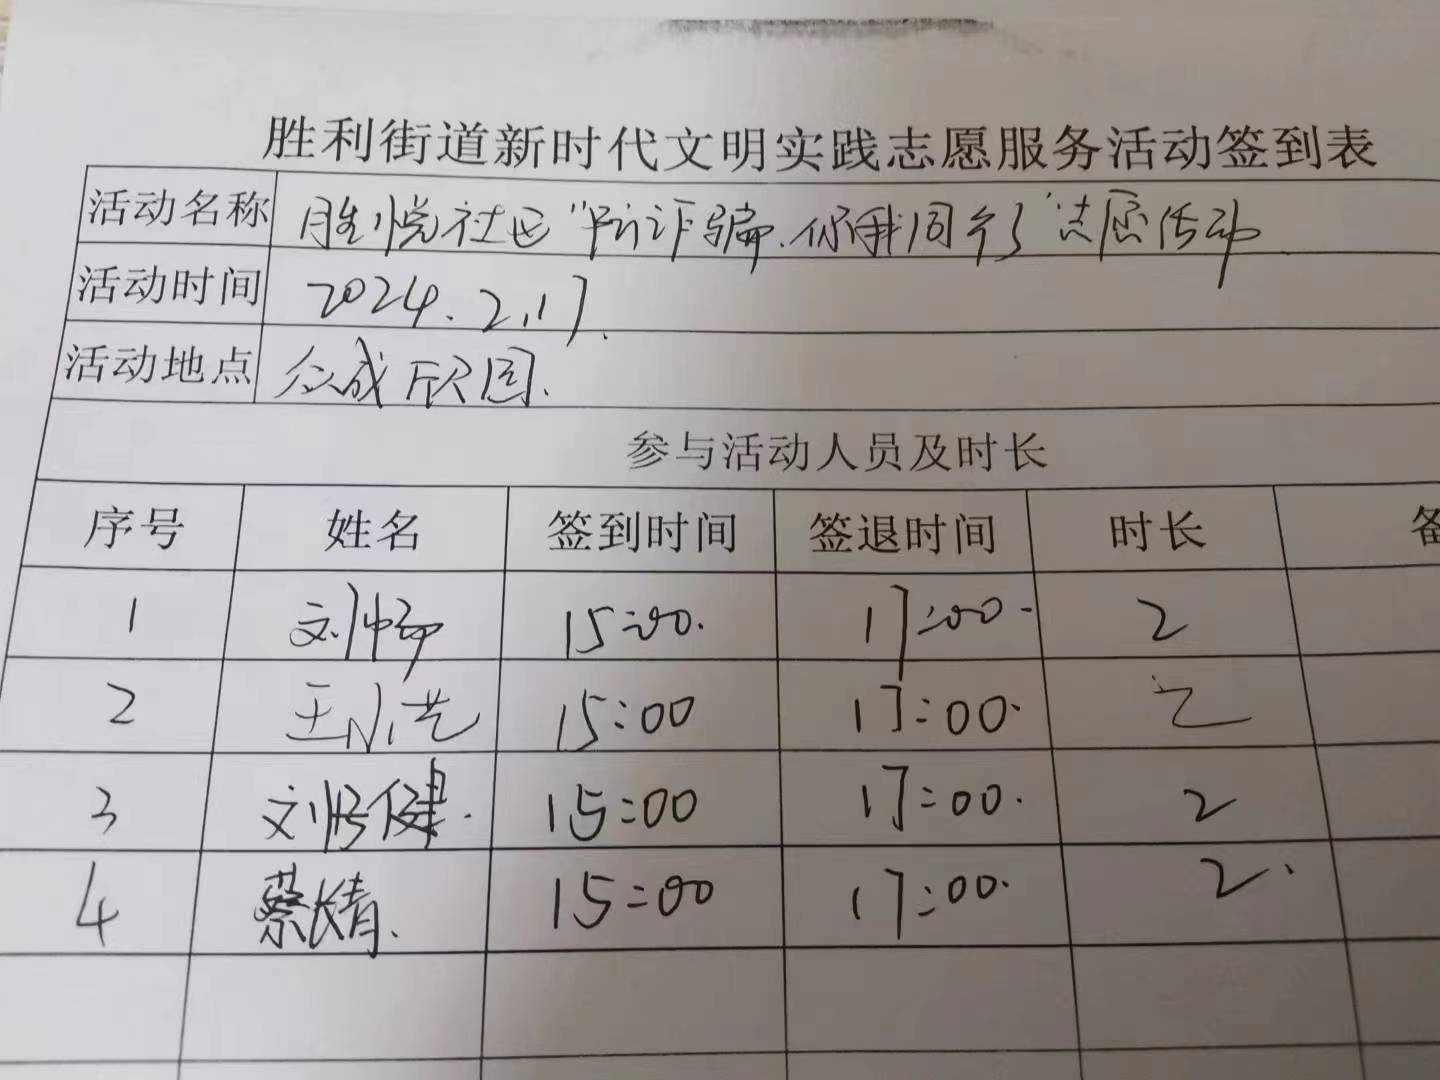 胜利街道新时代文明实践志愿服务活动签到表
活动名称 胜悦社区“防诈骗.你我同参与”志愿活动
活动时间 2024.2.17.
活动地点 众成欣园.
参与活动人员及时长
序号 姓名 签到时间 签退时间 时长
1 刘 15:00. 17:00. 2
2 王小艺 15:00 17:00. 2
3 刘 健. 15:00 17:00. 2
4 蔡 15:00 17:00. 2.